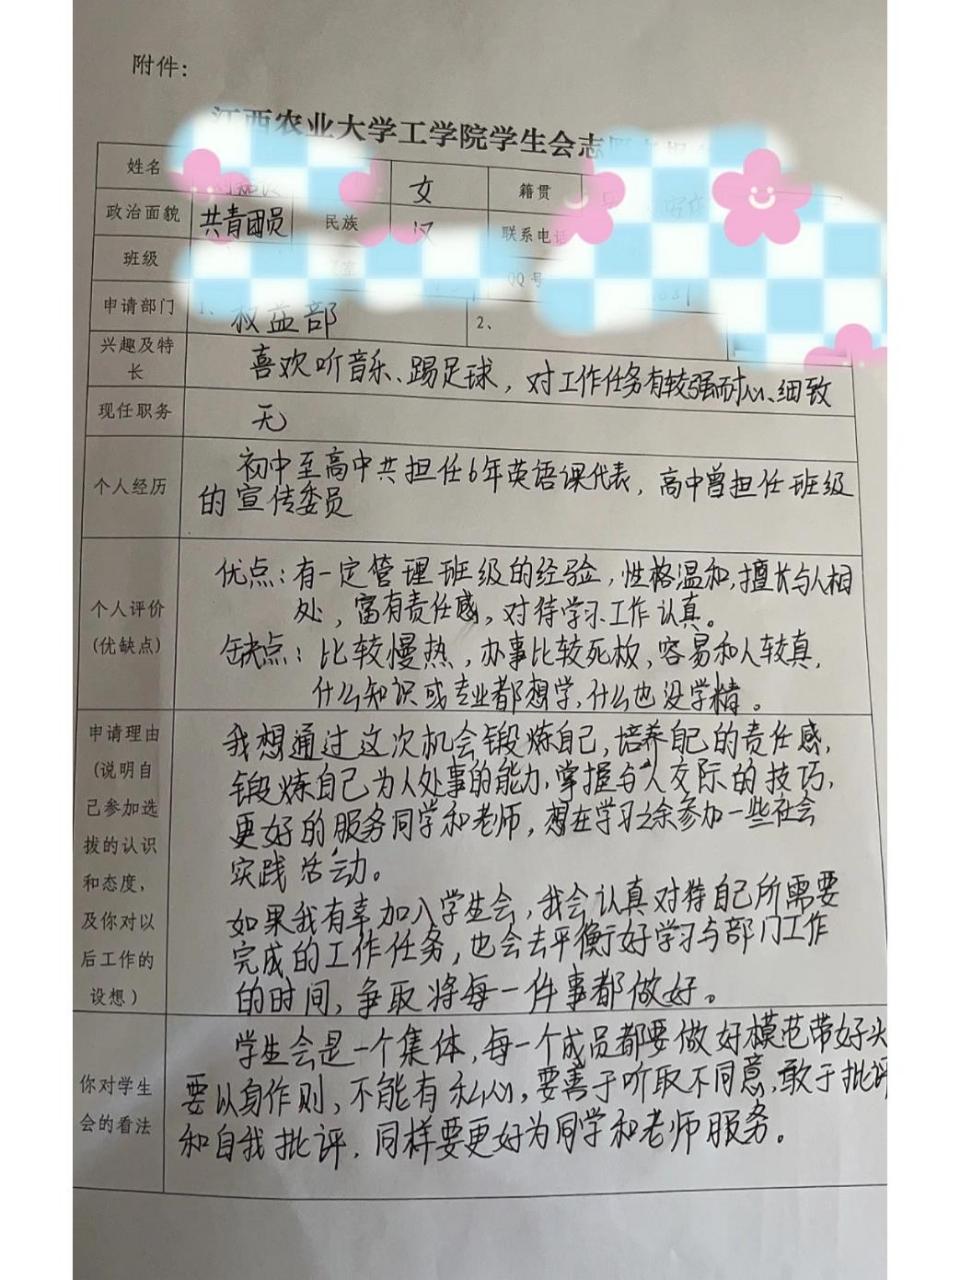 附件：
江西农业大学工学院学生会志
姓名 女 籍贯
政治面貌 共青团员 民族 汉 联系电话
班级 QQ号
申请部门 1、权益部 2、
兴趣及特
长
喜欢听音乐、踢足球，对工作任务有较强耐心、细致
现任职务 无
个人经历
初中至高中共担任6年英语课代表，高中曾担任班级
的宣传委员
个人评价
(优缺点)
优点：有一定管理班级的经验，性格温和，擅长与人相
处，富有责任感，对待学习工作认真。
缺点：比较慢热，办事比较死板，容易和人较真，
什么知识或专业都想学，什么也没学精。
申请理由
(说明自
己参加选
拔的认识
和态度，
及你对以
后工作的
设想)
我想通过这次机会锻炼自己，培养自己的责任感，
锻炼自己为人处事的能力，掌握与人交际的技巧，
更好的服务同学和老师，想在学习之余参加一些社会
实践活动。
如果我有幸加入学生会，我会认真对待自己所需要
完成的工作任务，也会去平衡好学习与部门工作
的时间，争取将每一件事都做好。
你对学生
会的看法
学生会是一个集体，每一个成员都要做好模范带好头
要以身作则，不能有私心，要善于听取不同意，敢于批评
和自我批评，同样要更好为同学和老师服务。